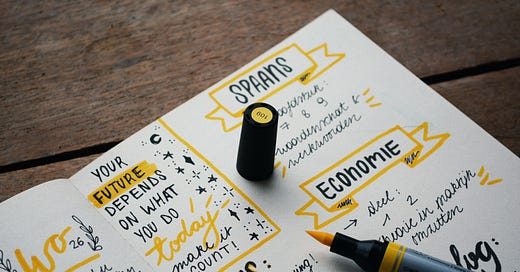 Wo
26
YOUR
FUTURE
DEPENDS
ON WHAT
YOU DO
today
make it
COUNT!
SPAANS
hoofdstuk:
7 8 9
woordenschat &
werkwoorden
109
ECONOMIE
→ deel: 1 2
in praktijk
omzetten